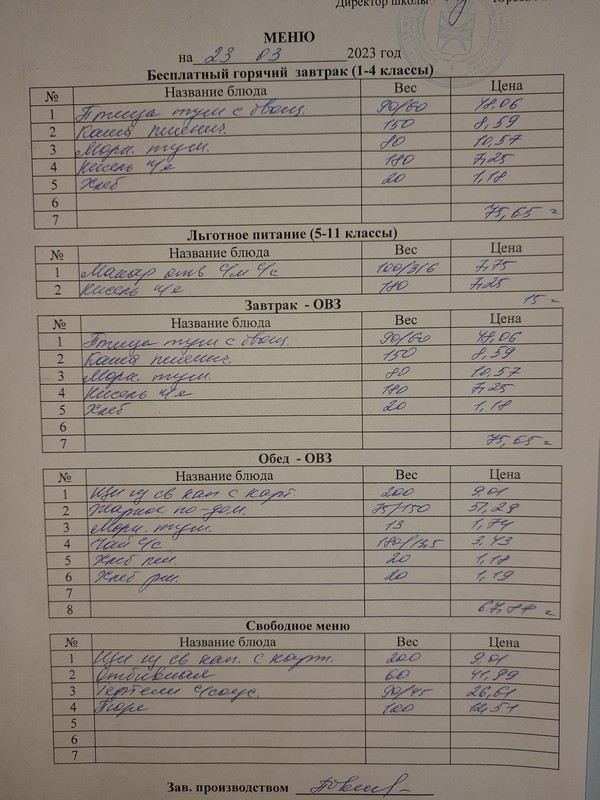 Директор школы
МЕНЮ
на 23 03 2023 год
Бесплатный горячий завтрак (1-4 классы)
№ Название блюда Вес Цена
1 Птица туш с овощ. 90/60 48,06
2 Каша пшенич. 150 8,59
3 Морк. туш. 80 10,57
4 Кисель ч/е 180 7,25
5 Хлеб 20 1,18
6
7 75,65 =
Льготное питание (5-11 классы)
№ Название блюда Вес Цена
1 Макар отв с/м с/с 100/3/6 7,75
2 Кисель ч/е 180 7,25
15 =
Завтрак - ОВЗ
№ Название блюда Вес Цена
1 Птица туш с овощ. 90/60 48,06
2 Каша пшенич. 150 8,59
3 Морк. туш. 80 10,57
4 Кисель ч/е 180 7,25
5 Хлеб 20 1,18
6
7 75,65 =
Обед - ОВЗ
№ Название блюда Вес Цена
1 Щи из св кап с карт. 200 9,01
2 Жаркое по-дом. 75/150 51,29
3 Морк. туш. 13 1,74
4 Чай с/с 180/13,5 3,43
5 Хлеб пш. 20 1,18
6 Хлеб рж. 20 1,19
7
8 67,84 =
Свободное меню
№ Название блюда Вес Цена
1 Щи из св кап. с карт. 200 9,01
2 Отбивная 60 41,99
3 Тефтели с/соус. 90/45 26,61
4 Пюре 100 12,51
5
6
7
Зав. производством